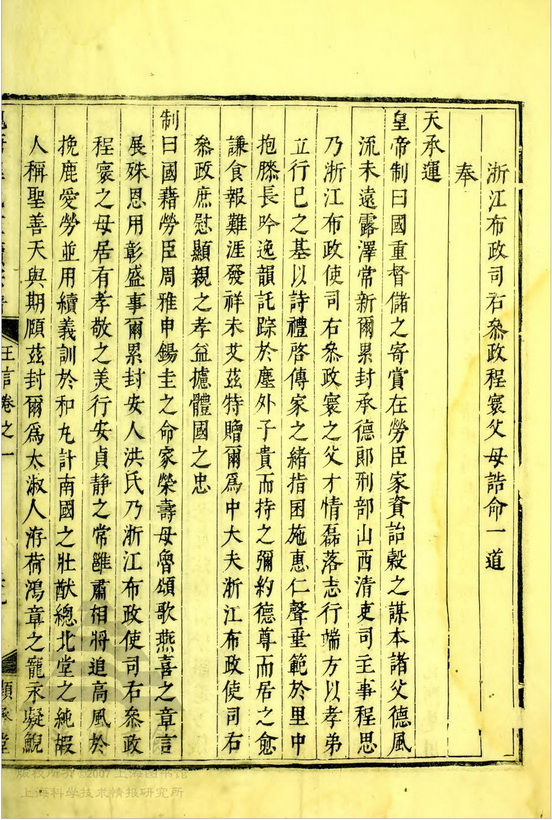 浙江布政司右叅政程寰父母誥命一道
奉
天承運
皇帝制曰國重督儲之寄賞在勞臣家資詒穀之謀本諸父德風
流未遠露澤常新爾累封承德郎刑部山西清吏司主事程思
乃浙江布政使司右叅政寰之父才情磊落志行端方以孝弟
立行已之基以詩禮啓傳家之緒指囷施惠仁聲垂範於里中
抱膝長吟逸韻託踪於塵外子貴而持之彌約德尊而居之愈
謙食報難涯發祥未艾茲特贈爾爲中大夫浙江布政使司右
叅政庶慰顯親之孝益攄體國之忠
制曰國藉勞臣周雅申錫圭之命家榮壽母魯頌歌燕喜之章言
展殊恩用彰盛事爾累封安人洪氏乃浙江布政使司右叅政
程寰之母居有孝敬之美行安貞静之常雝肅相將追高風於
挽鹿愛勞並用續義訓於和丸計南國之壯猷總北堂之純嘏
人稱聖善天與期頤茲封爾爲太淑人洊荷鴻章之寵永凝鯢
王言卷之一
順承堂
版权所有©2007上海图书馆
上海科学技术情报研究所